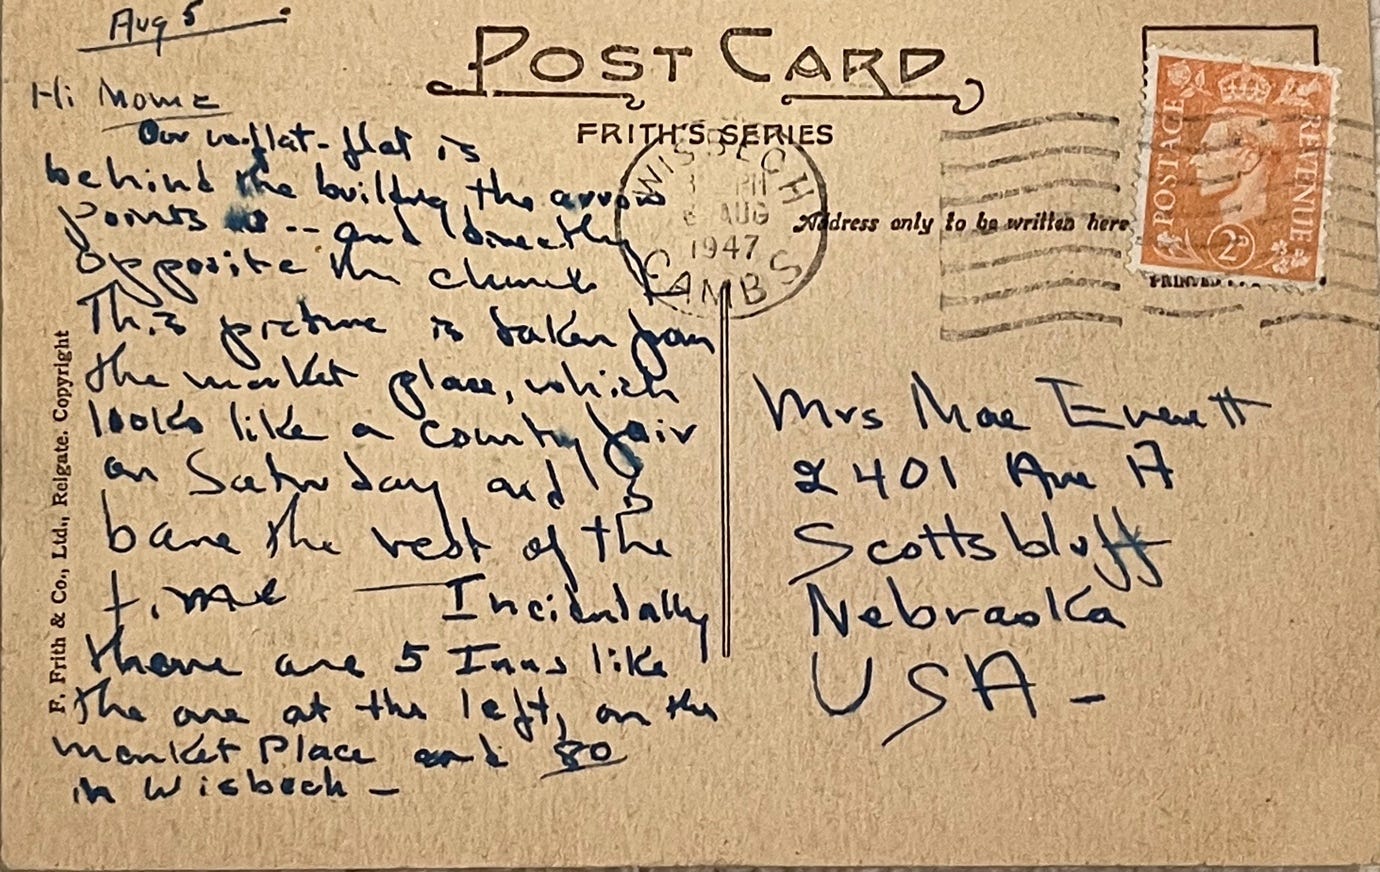 Aug 5
Hi Mom =
Our flat is
behind the building the arrow
points -- and directly
opposite the church
This picture is taken from
the market place, which
looks like a country fair
on Saturday and is
bare the rest of the
time — Incidentally
there are 5 Inns like
the one at the left, on the
market Place and 80
in Wisbech –
F. Frith & Co., Ltd., Reigate. Copyright
POST CARD
FRITH'S SERIES
WISBECH
PM
AUG
1947
CAMBS
Address only to be written here
POSTAGE
REVENUE
2D
PRINTED
Mrs Mae Everett
2401 Ave A
Scottsbluff
Nebraska
USA –